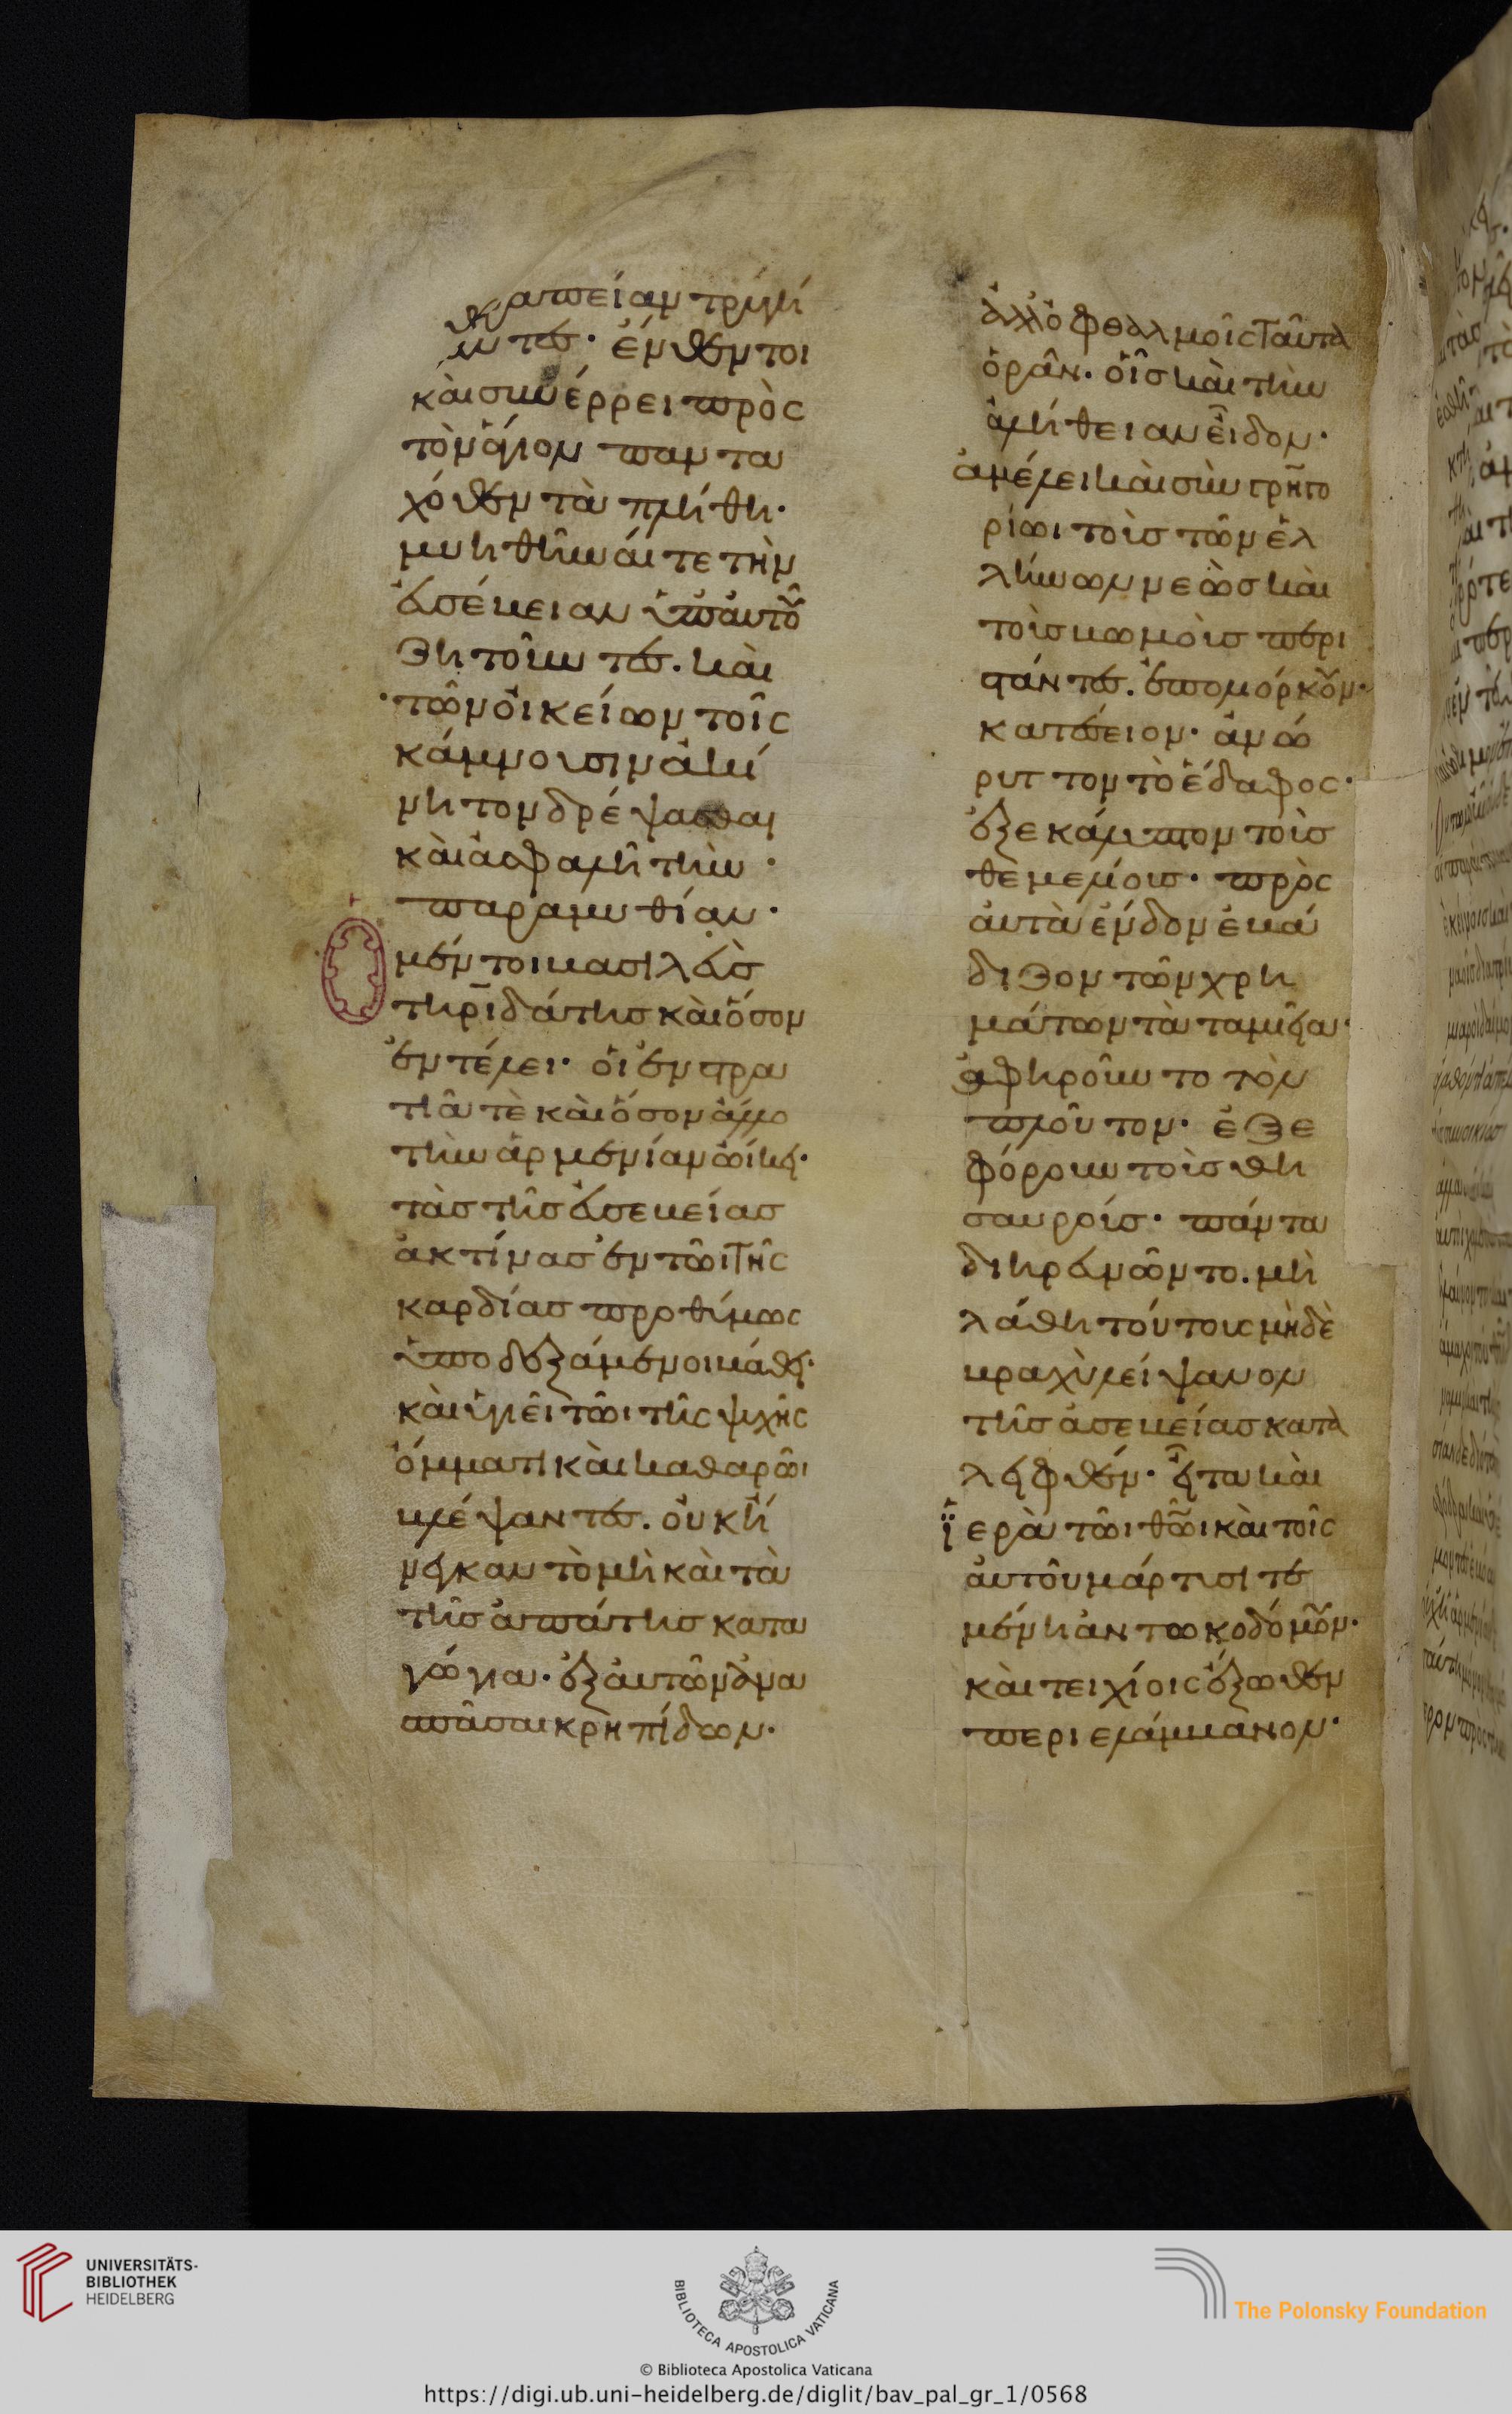 θεραπείαν τρυγή
σωντες· ἔνθέν τοι
καὶ συνέρρει πρὸς
τὸν ἅγιον πανταχόθεν τὰ πλήθη·
μυηθῆναί τε τὴν
εὐσέβειαν ὑπ' αὐτοῦ
ζητοῦντες. καὶ
τῶν οἰκείων τοῖς
κάμνουσιν ἀκί
νητον δρέψασθαι
καὶ ἀσφαλῆ τὴν
παραμυθίαν·
Ὁ μέντοι βασιλεὺς
τηριδάτης καὶ ὅσον
ἐν τέλει· οἱ ἐν στρα
τιᾶ τὲ καὶ ὅσον ἄλλο
τὴν ἀρμενίαν ὤικει·
τὰς τῆς εὐσεβείας
ἀκτίνας ἐν τῶι τῆς
καρδίας προθύμως
ὑποδεξάμενοι βάθει·
καὶ ὑγιεῖ τῶι τῆς ψυχῆς
ὄμματι καὶ καθαρῶι
βλέψαντες. οὐκ ἤ
νεγκαν τὸ μὴ καὶ τὰ
τῆς ἀπάτης κατα
γώγια· ἐξ αὐτῶν ἀνα
σπᾶσαι κρηπίδων·
ἀλλ' ὀφθαλμοῖς ταῦτα
ὁρᾶν. οἷς καὶ τὴν
ἀλήθειαν εἶδον·
ἀμέλει καὶ σὺν γρηγο
ρίωι τοῖς τῶν ἑλ
λήνων νεῶς καὶ
τοῖς βωμοῖς περι
στάντες. ἐπομόρκουν·
κατέσπειον· ἀνώ
ρυττον τὸ ἔδαφος·
ἐξεκάλυπτον τοῖς
θεμελίοις· πρὸς
αὐτὰ ἔνδον ἐβά
διζον τῶν χρη
μάτων τὰ ταμιεῖα·
ἀφηροῦντο τὸν
πλοῦτον· ἐξε
φόρουν τοῖς θη
σαυρούς· πάντα
διηρευνῶντο. μὴ
λάθη τούτοις μηδὲ
βραχὺ λείψανον
τῆς ἀσεβείας κατα
λειφθέν· εἶτα καὶ
ἱερὰ τῶι θῶι καὶ τοῖς
αὐτοῦ μάρτυσι τε
μένη ἀντωκοδόμουν·
καὶ τειχίοις ἔξωθεν
περιελάμβανον·
UNIVERSITÄTS-
BIBLIOTHEK
HEIDELBERG
BIBLIOTECA APOSTOLICA VATICANA
The Polonsky Foundation
© Biblioteca Apostolica Vaticana
https://digi.ub.uni-heidelberg.de/diglit/bav_pal_gr_1/0568